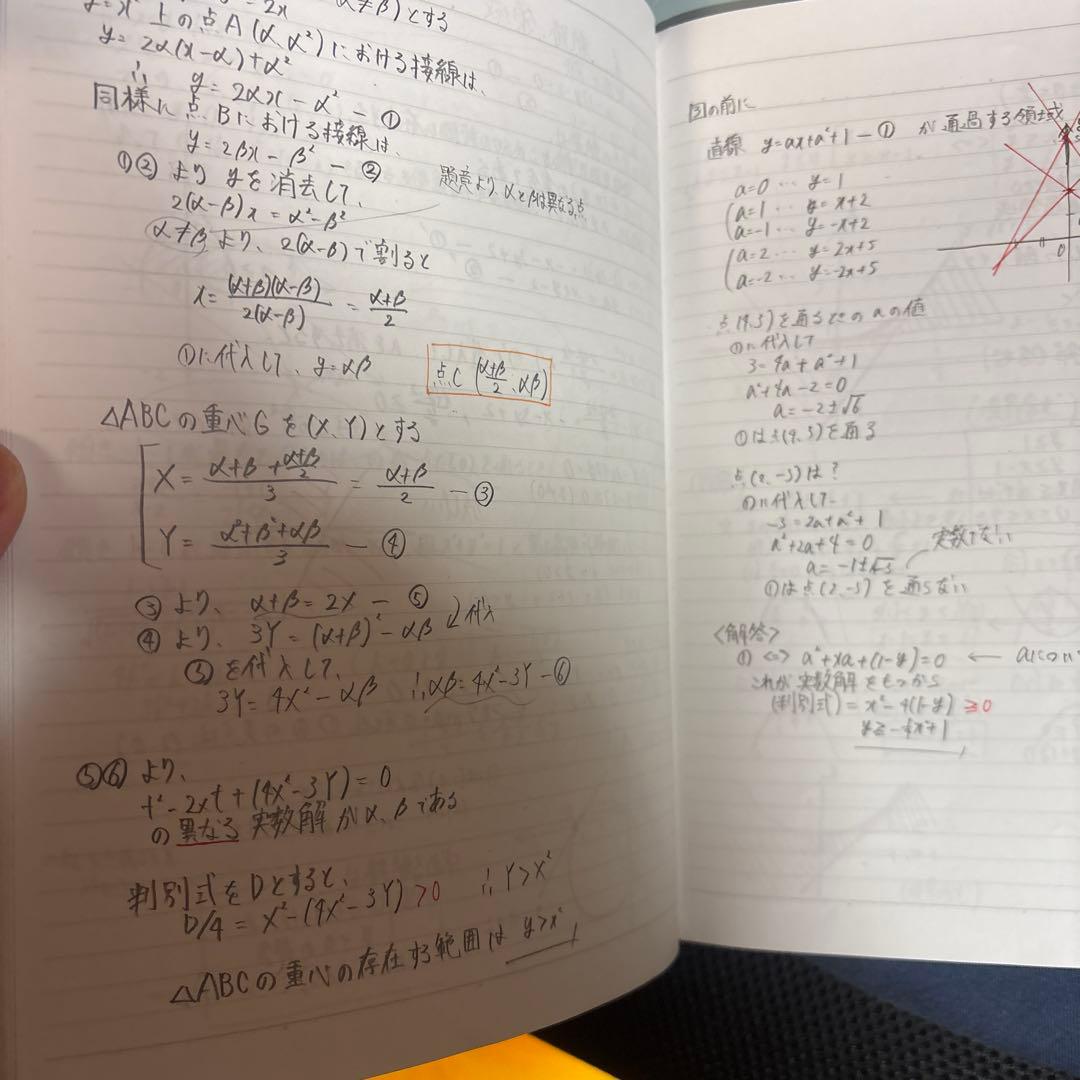 y=x² 上の点A(α,α²)における接線は、
y=2α(x-α)+α²
∴ y=2αx-α² ―①
同様に点Bにおける接線は、
y=2βx-β² ―②
①②より yを消去して、
題意より αとβは異なる点
2(α-β)x=α²-β²
α≠βより、2(α-β)で割ると
x=(α+β)(α-β)/2(α-β)=α+β/2
①に代入して、y=αβ
点C(α+β/2,αβ)
△ABCの重心Gを(X,Y)とする
X=α+β+α+β/2/3=α+β/2 ―③
Y=α²+β²+αβ/3 ―④
③より、α+β=2X ―⑤
④より、3Y=(α+β)²-αβ
代入
⑤を代入して、
3Y=4X²-αβ ∴αβ=4X²-3Y―⑥
⑤⑥より、
t²-2Xt+(4X²-3Y)=0
の異なる実数解がα,βである
判別式をDとすると、
D/4=X²-(4X²-3Y)>0 ∴Y>X²
△ABCの重心の存在する範囲は y>x²
図の前に
直線 y=ax+a²+1―① が通過する領域
a=0 … y=1
a=1 … y=x+2
a=-1 … y=-x+2
a=2 … y=2x+5
a=-2 … y=-2x+5
0
を通るときのaの値
①に代入して
3=4a+a²+1
a²+4a-2=0
a=-2±√6
①は点(4,3)を通る
点(2,-3)は?
①に代入して
-3=2a+a²+1
a²+2a+4=0
実数でない
①は点(2,-3)を通らない
<解答>
①⇔a²+xa+(1-y)=0 ←
これが実数解をもつから
(判別式)=x²-4(1-y)≧0
y≧-¼x²+1